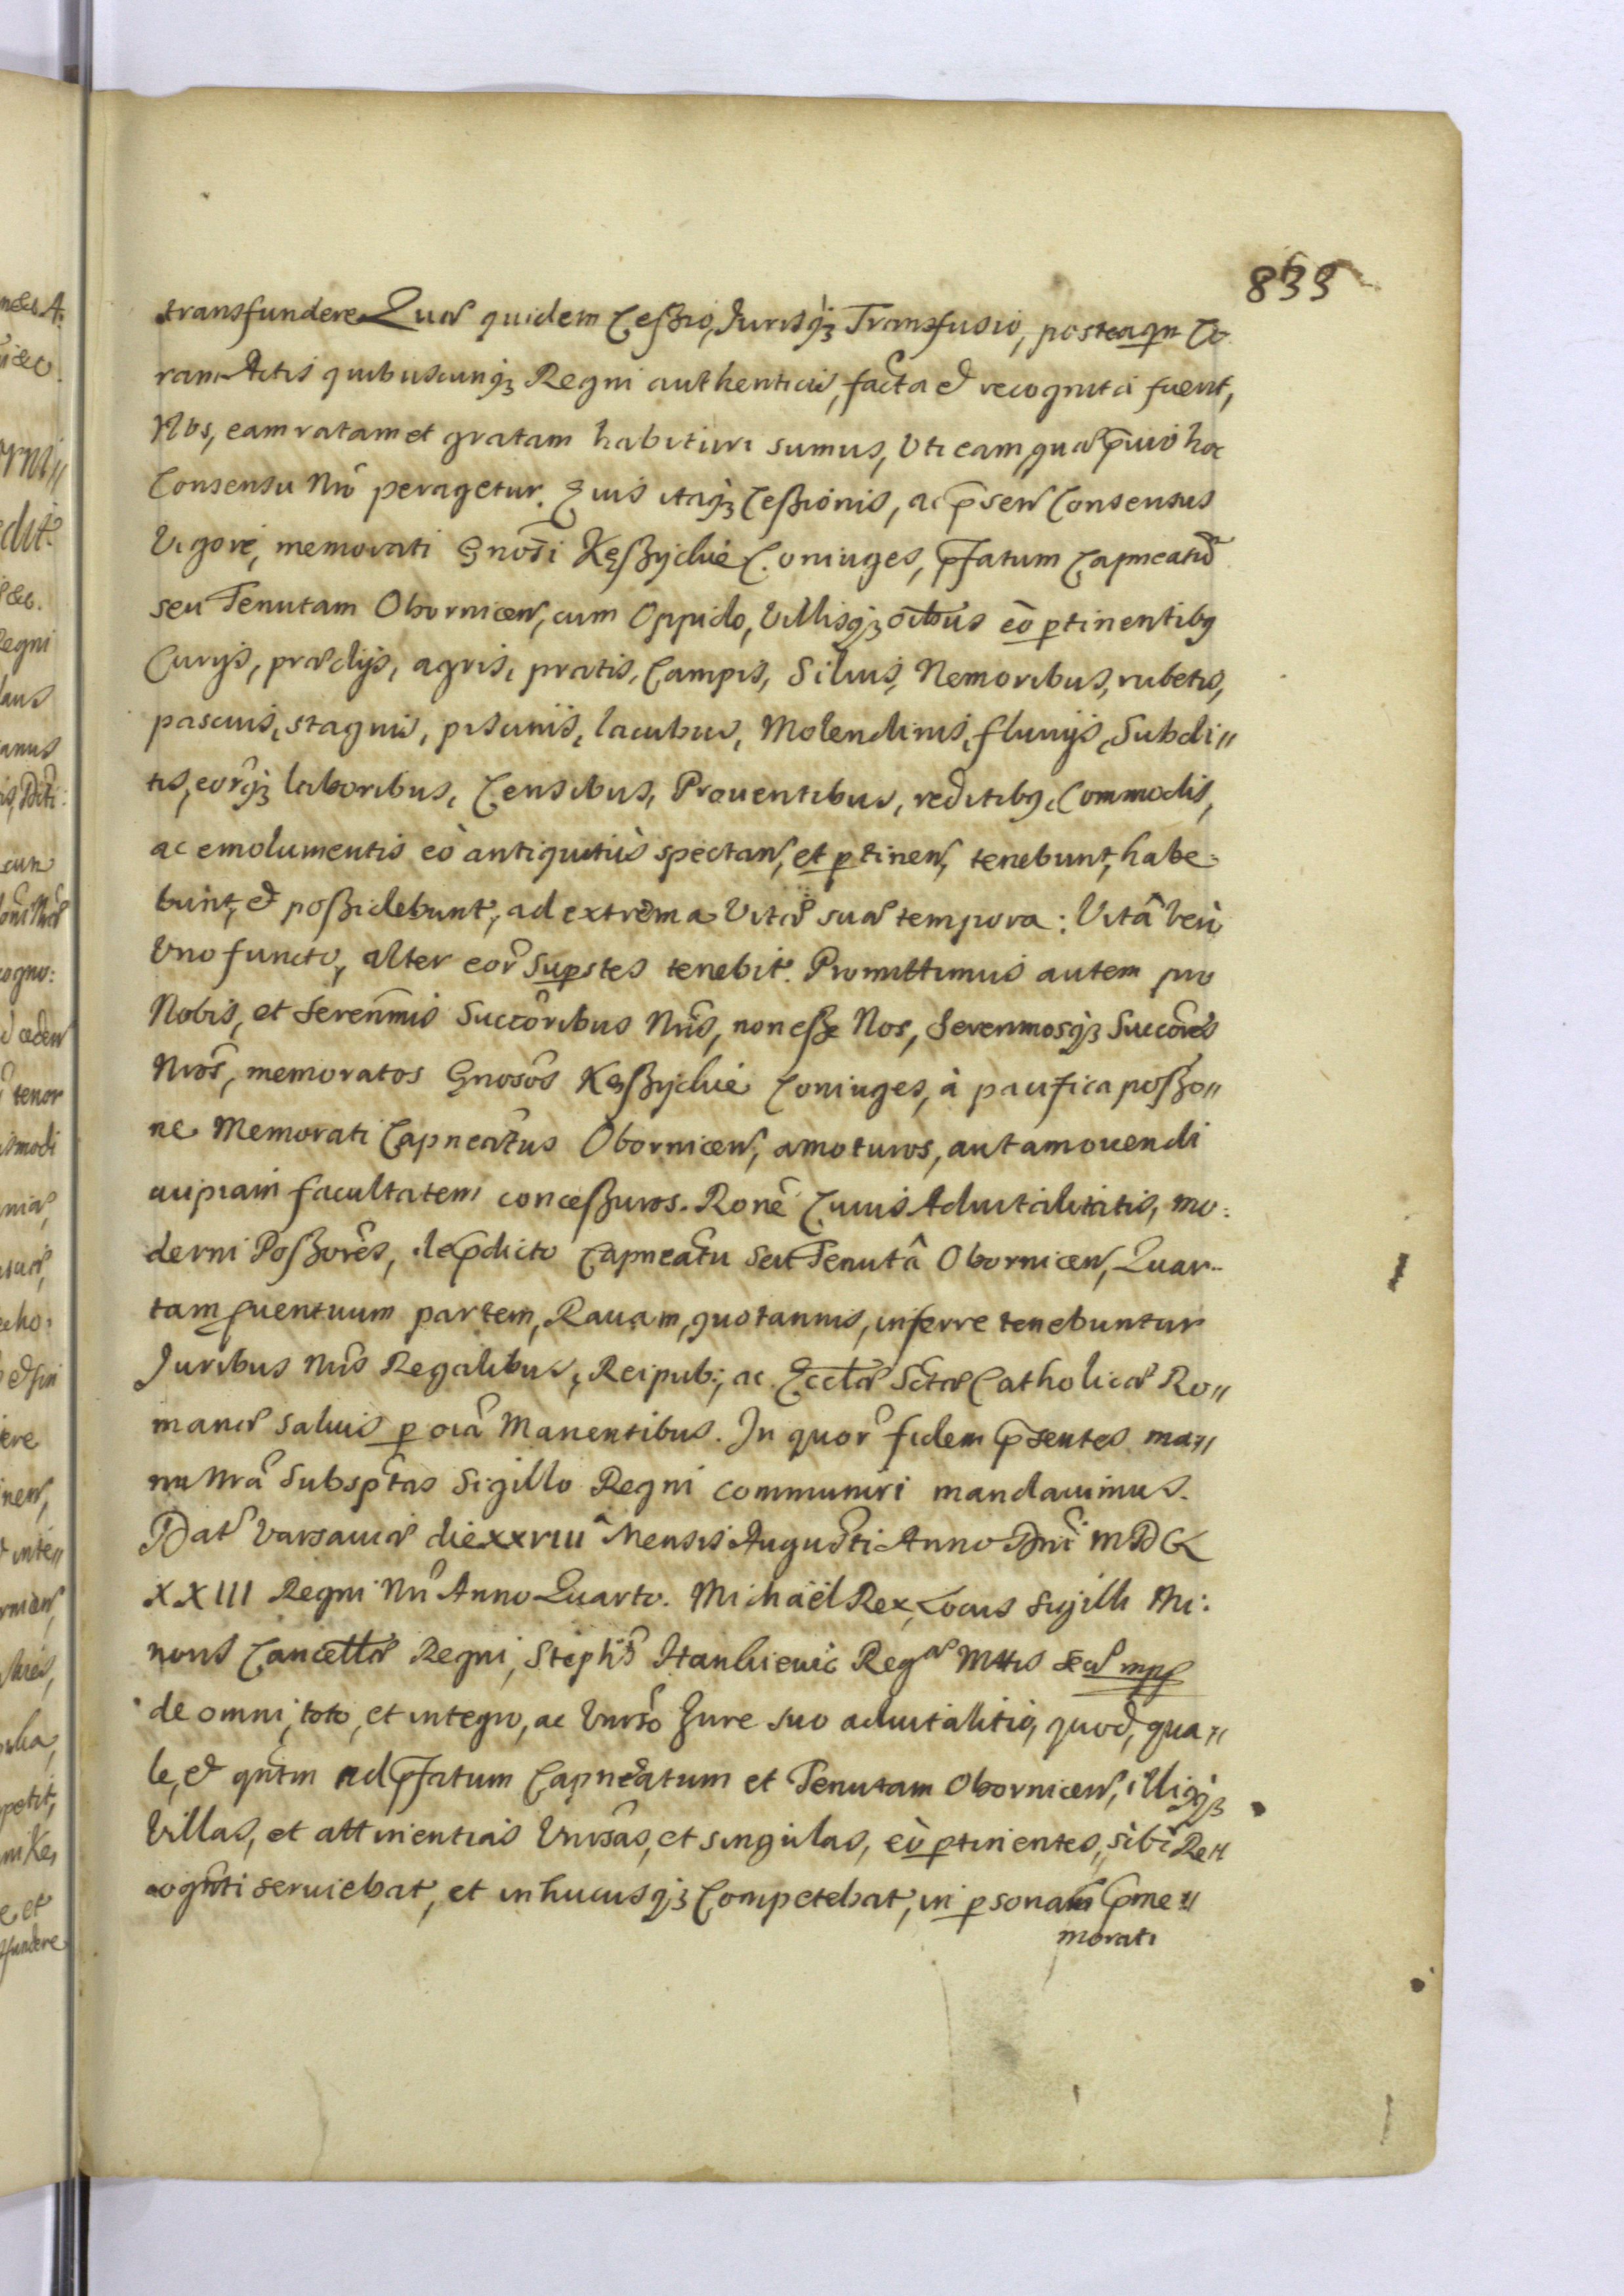 833
transfundere Quæ quidem Cessio, Jurisq₃ Transfusio, posteaqm̃ Co
ram Actis quibuscunq₃ Regni authenticis, facta et recognita fuerit,
Nos, eam ratam et gratam habituri sumus, Uti eam, quæ p̃uio hoc
Consensu Nr̃o peragetur. Cuius itaq₃ Cessionis, ac p̃sen̄ Consensus
Vigore, memorati Gnosi Kęssyckie Coniuges, p̃fatum Capneatũ
seu Tenutam Obornicen̄, cum Oppido, Villisq₃ oībus eò ptinentibq
Curijs, prædijs, agris, pratis, Campis, Siluis, Nemoribus, rubetis,
pascuis, stagnis, piscinis, lacubus, Molendinis, fluuijs, Subdi〃
tis, eor̃q₃ laboribus, Censibus, Prouentibus, reditibq, Commodis,
ac emolumentis eò antiquitùs spectan̄, et ptinen̄, tenebunt, habe:
bunt, et possidebunt, ad extrema Vitæ suæ tempora: Vitâ verò
Uno functo, alter eor̃ supstes tenebit. Promittimus autem pro
Nobis, et Serenm̃is Succ̃oribus Nr̃is, non esse Nos, Serenmosq₃ Succõres
Nr̃os, memoratos Gnosos Kęssyckie Coniuges, à pacifica posso〃
ne Memorati Capneatus Obornicen̄, amoturos, aut amouendi
cuipiam facultatem concessuros. Rone Cuius Aduitalitatis, mo:
derni Possores, de p̃dicto Capneatu seu Tenutâ Obornicen̄, Quar-
tam puentuum partem, Rauam, quotannis, inferre tenebuntur
Juribus Nr̃is Regalibus, Reipub:, ac Eccl̃æ Sctæ Catholicæ Ro〃
manæ saluis p oĩa Manentibus. In quor̃ fidem p̃sentes ma〃
nu Nr̃a Subsptas Sigillo Regni communiri mandauimus.
Dat̃ Varsauiæ die xxviiiâ Mensis Augusti Anno Dnĩ MDCL
XXIII Regni Nr̃i Anno Quarto. Michaël Rex, Locus Sigilli Mi:
noris Cancell̃æ Regni, Steph̃s Hankiewic Regæ Mttis Secr̃ mpp
de omni, toto, et integro, ac Unr̃so Jure suo aduitalitio, quod, qua〃
le, et qñtm ad p̃fatum Capneatum et Tenutam Obornicen̄, illiq₃
Villas, et attinentias Unr̃sas, et singulas, eò ptinentes, sibi Re〃
cogñti seruiebat, et inhucusq₃ Competebat, in psonam p̃me〃
morati